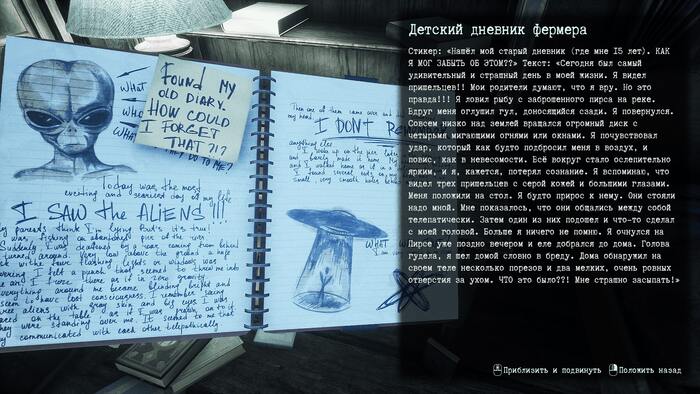 What
What
What
THEY DO TO ME?
Found my
old diary.
How could
I forget
that?!?
Today was the most
exciting and scariest day of my life
I SAW the ALIENS!!!
my parents think I'm lying but it's true!
was fishing on abandoned pier of the
Suddenly I was deafened by a roar, coming from behind
turned around. Very low above the ground a huge
with four flashing lights or windows was
I felt a punch, that seemed to threw me into
air and I froze there as if in zero gravity.
everything around me became blinding bright and
seem to have lost consciousness. I remember seeing
three aliens with gray skin and big eyes. I was
on the table, as if I was
they were standing over me. It seemed to me that
they communicated with each other telepathically
Then one of them came over and
my head.
I DONT
anything else.
I woke up on the pier late
and barely made it home. My
and I walked home
I found several cuts on my
small, very smooth
WHAT
Детский дневник фермера
Стикер: «Нашёл мой старый дневник (где мне 15 лет). КАК
Я МОГ ЗАБЫТЬ ОБ ЭТОМ??» Текст: «Сегодня был самый
удивительный и страшный день в моей жизни. Я видел
пришельцев!! Мои родители думают, что я вру. Но это
правда!!! Я ловил рыбу с заброшенного пирса на реке.
Вдруг меня оглушил гул, доносящийся сзади. Я повернулся.
Совсем низко над землей вращался огромный диск с
четырьмя мигающими огнями или окнами. Я почувствовал
удар, который как будто подбросил меня в воздух, и
повис, как в невесомости. Всё вокруг стало ослепительно
ярким, и я, кажется, потерял сознание. Я вспоминаю, что
видел трех пришельцев с серой кожей и большими глазами.
Меня положили на стол. Я будто прирос к нему. Они стояли
надо мной. Мне показалось, что они общались между собой
телепатически. Затем один из них подошел и что-то сделал
с моей головой. Больше я ничего не помню. Я очнулся на
Пирсе уже поздно вечером и еле добрался до дома. Голова
гудела, я шел домой словно в бреду. Дома обнаружил на
своем теле несколько порезов и два мелких, очень ровных
отверстия за ухом. ЧТО это было??! Мне страшно засыпать!»
Приблизить и подвинуть Положить назад